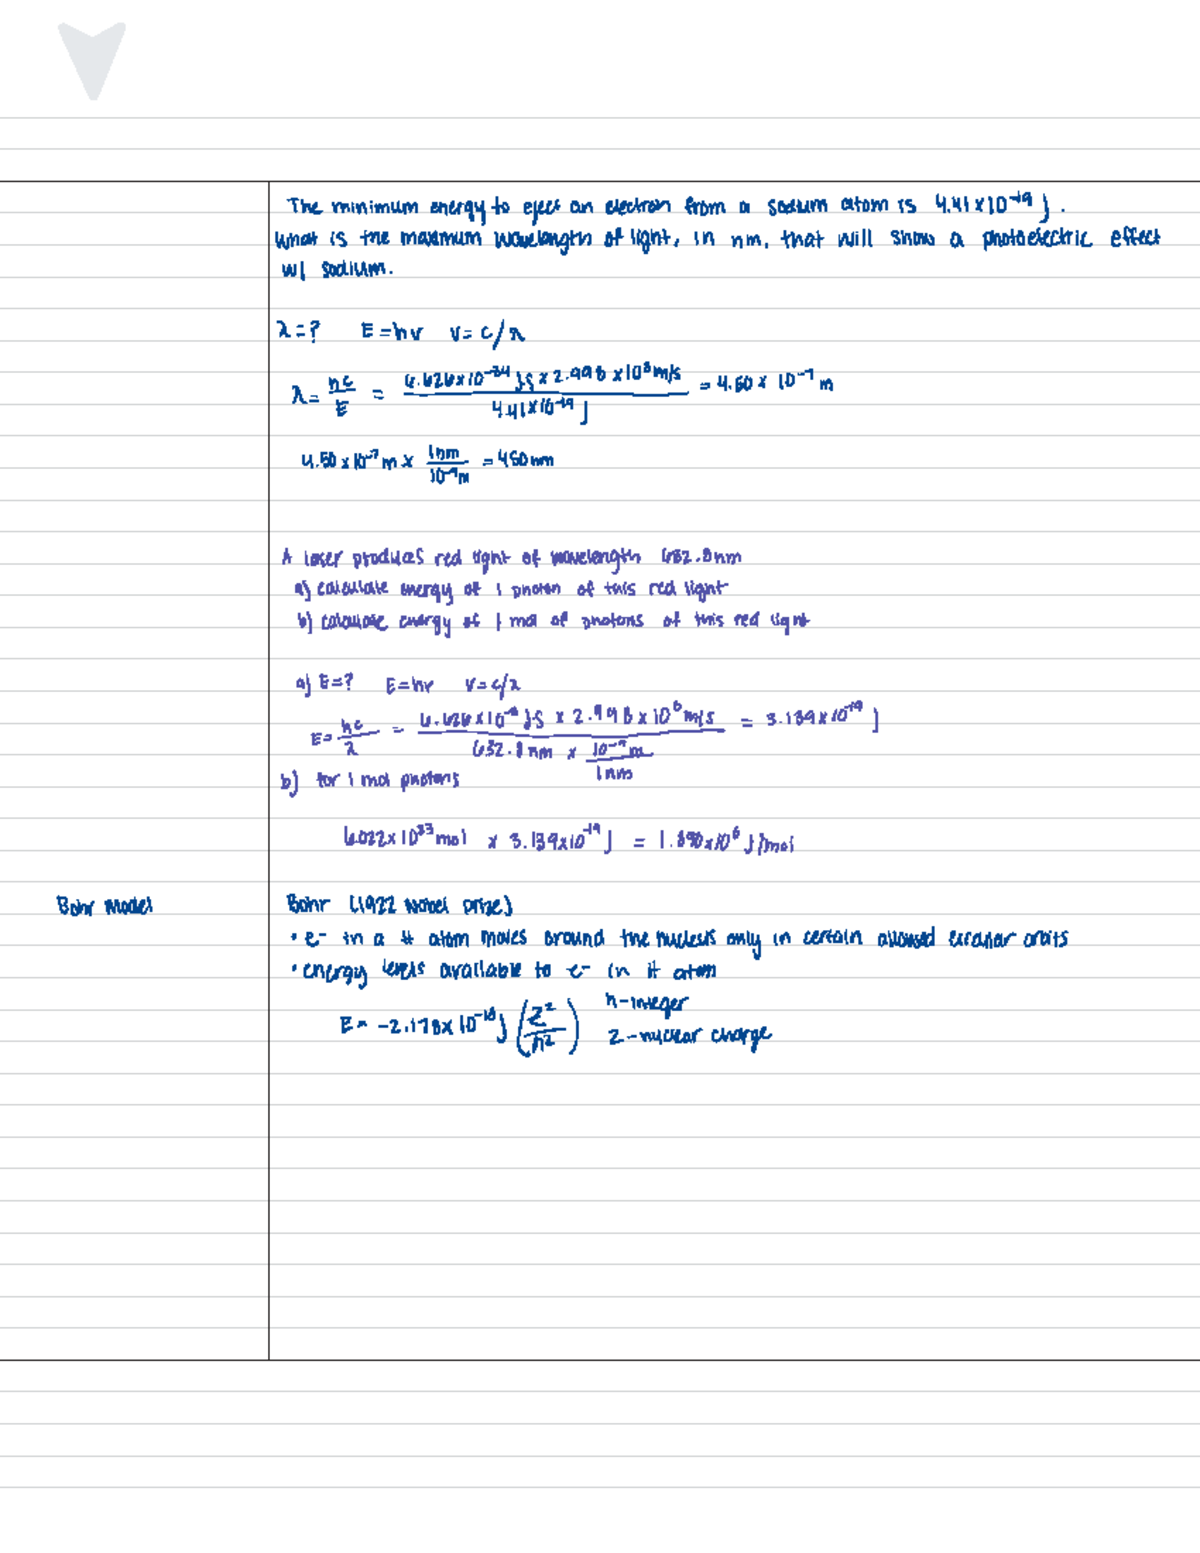 The minimum energy to eject an electron from a sodium atom is 4.41 x 10⁻¹⁹ J.
What is the maximum wavelength of light, in nm, that will show a photoelectric effect
w/ sodium.
λ = ? E = hν ν = c/λ
λ = hc/E = 6.626 x 10⁻³⁴ Js x 2.998 x 10⁸ m/s / 4.41 x 10⁻¹⁹ J = 4.50 x 10⁻⁷ m
4.50 x 10⁻⁷ m x 1nm/10⁻⁹m = 450 nm
A laser produces red light of wavelength 632.8nm
a) calculate energy of 1 photon of this red light
b) calculate energy of 1 mol of photons of this red light
a) E = ? E = hν ν = c/λ
E = hc/λ = J·s x 2.998 x 10⁸ m/s / 632.8 nm x 10⁻⁹ m/1nm = 3.139 x 10⁻¹⁹ J
b) for 1 mol photons
mol x 3.139 x 10⁻¹⁹ J = 1.890 x 10⁵ J/mol
Bohr Model
Bohr (1922 Nobel prize)
• e⁻ in a H atom moves around the nucleus only in certain allowed circular orbits
• energy levels available to e⁻ in H atom
E = -2.178 x 10⁻¹⁸ J (Z²/n²) n-integer
Z-nuclear charge